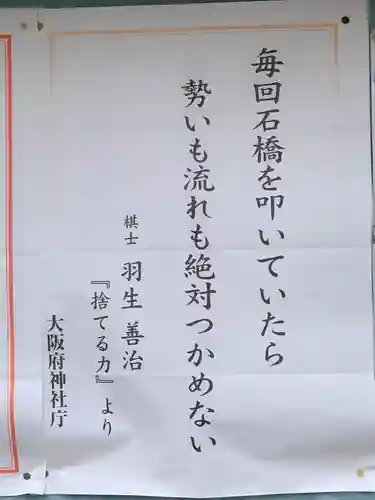 毎回石橋を叩いていたら
勢いも流れも絶対つかめない
棋士 羽生善治
『捨てる力』より
大阪府神社庁